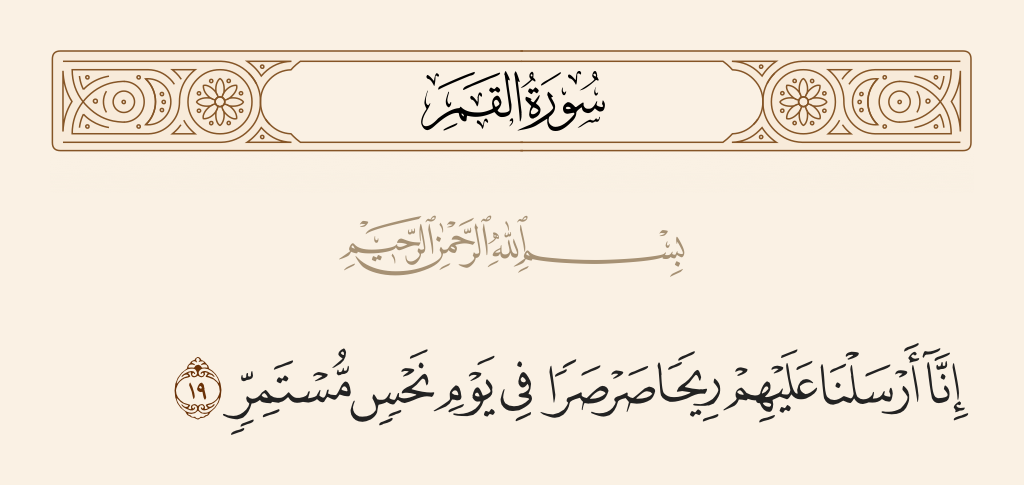 سُورَةُ القَمَرِ
بِسْمِ ٱللَّهِ ٱلرَّحْمَٰنِ ٱلرَّحِيمِ
إِنَّآ أَرْسَلْنَا عَلَيْهِمْ رِيحًا صَرْصَرًا فِي يَوْمِ نَحْسٍ مُّسْتَمِرٍّ ١٩